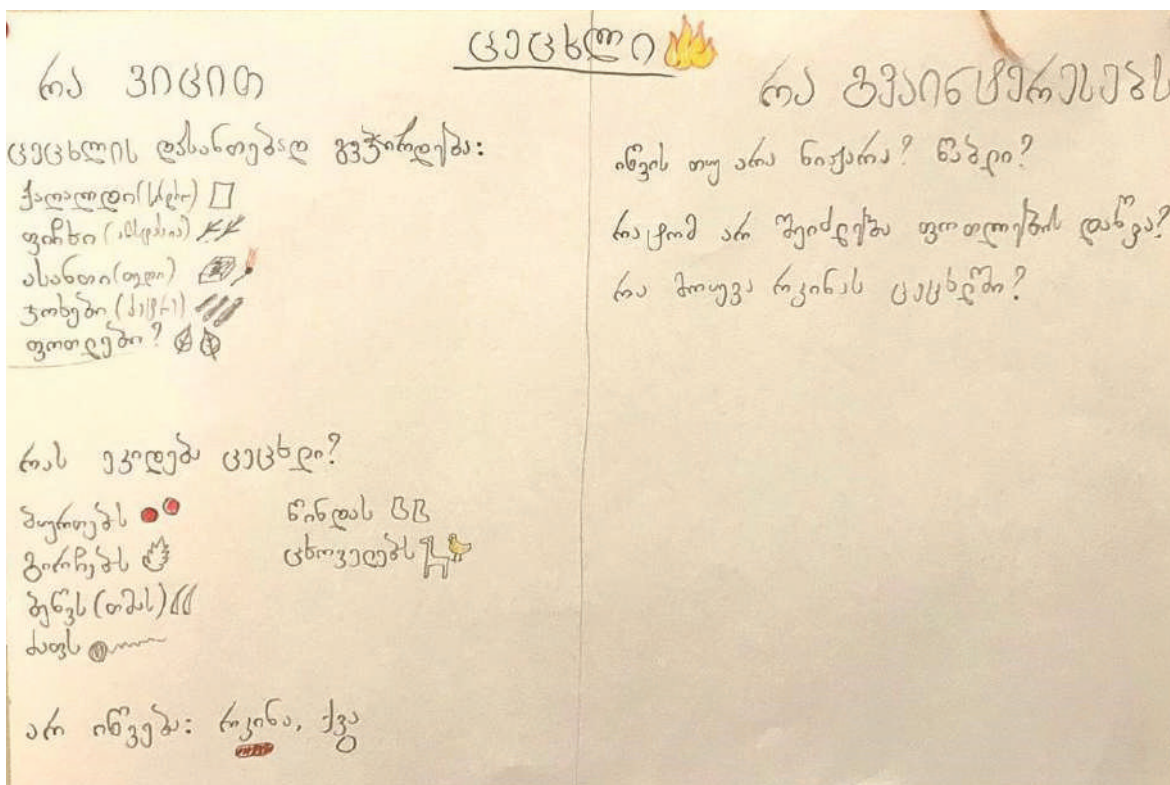 ცეცხლი
რა ვიცით
ცეცხლის დასანთებად გვჭირდება:
ქაღალდი (სანდრო)
ფიჩხი (ანასტასია)
ასანთი (თედო)
ჯოხები (ძატრე)
ფოთლები?
რას ეკიდება ცეცხლი?
ბურთებს
გირჩებს
ბეწვს (თმას)
ძაფს
წინდას
ცხოველებს
არ იწვება: რკინა, ქვა
რა გვაინტერესებს
იწვის თუ არა ნიჟარა? წაბლი?
რატომ არ შეიძლება ფოთლების დაწვა?
რა მოუვა რკინას ცეცხლში?